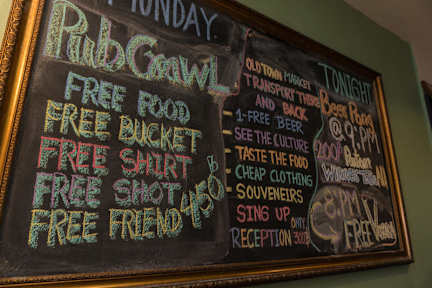 MONDAY.
PubCrawL
FREE FOOD
FREE BUCKET
FREE SHIRT
FREE SHOT
FREE FRIEND
450฿
OLDTOWN MARKET
TRANSPORT THERE
AND BACK
1-FREE BEER
SEE THE CULTURE
TASTE THE FOOD
CHEAP CLOTHING
SOUVENIRS
SING UP
RECEPTION
TONIGHT
Beer Pong
@ 9 PM
Winner
8PM
FREE